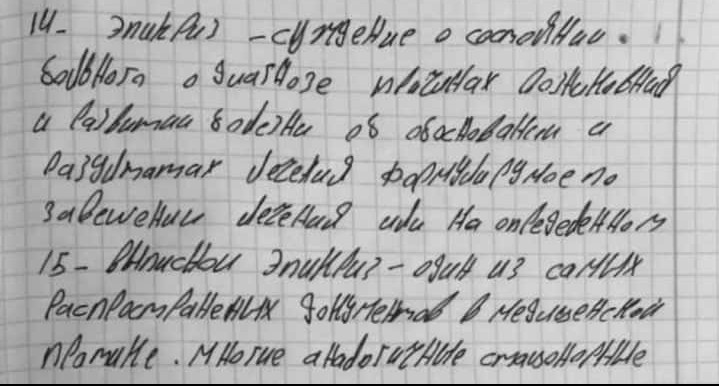 14- Эпикриз - суждение о состоянии
больного о диагнозе причинах возникновения
и развитии болезни об обоснованом и
результатах лечения формулируемое по
завешении лечения или на определенном
15- Выписной Эпикриз - один из самых
распространенных документов в медиценской
практике. Многие аналогичные стационарные